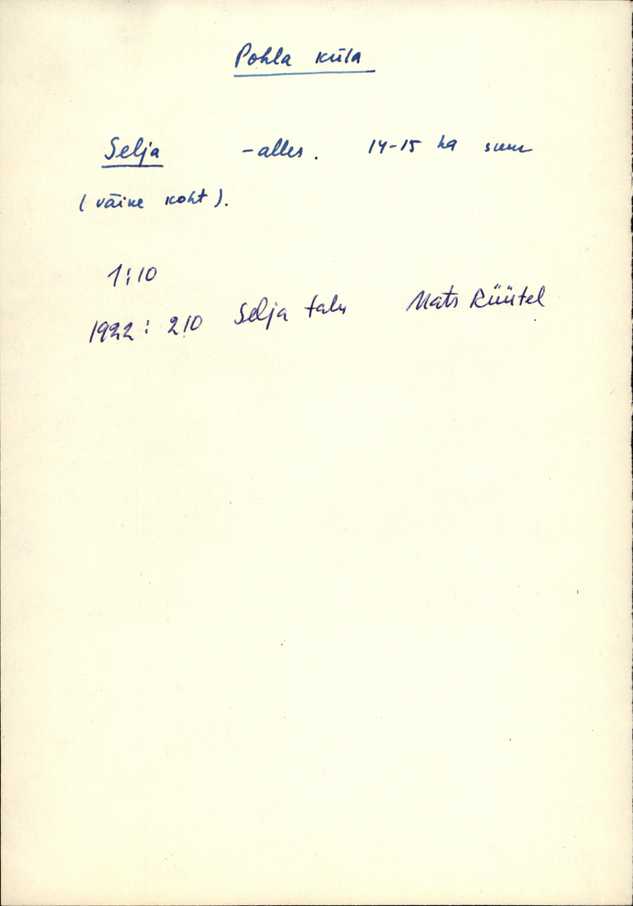 Pohla küla
Selja - alles. 14-15 ha suur
(väike koht).
1:10
1922: 210 Selja talu Mats Rüütel